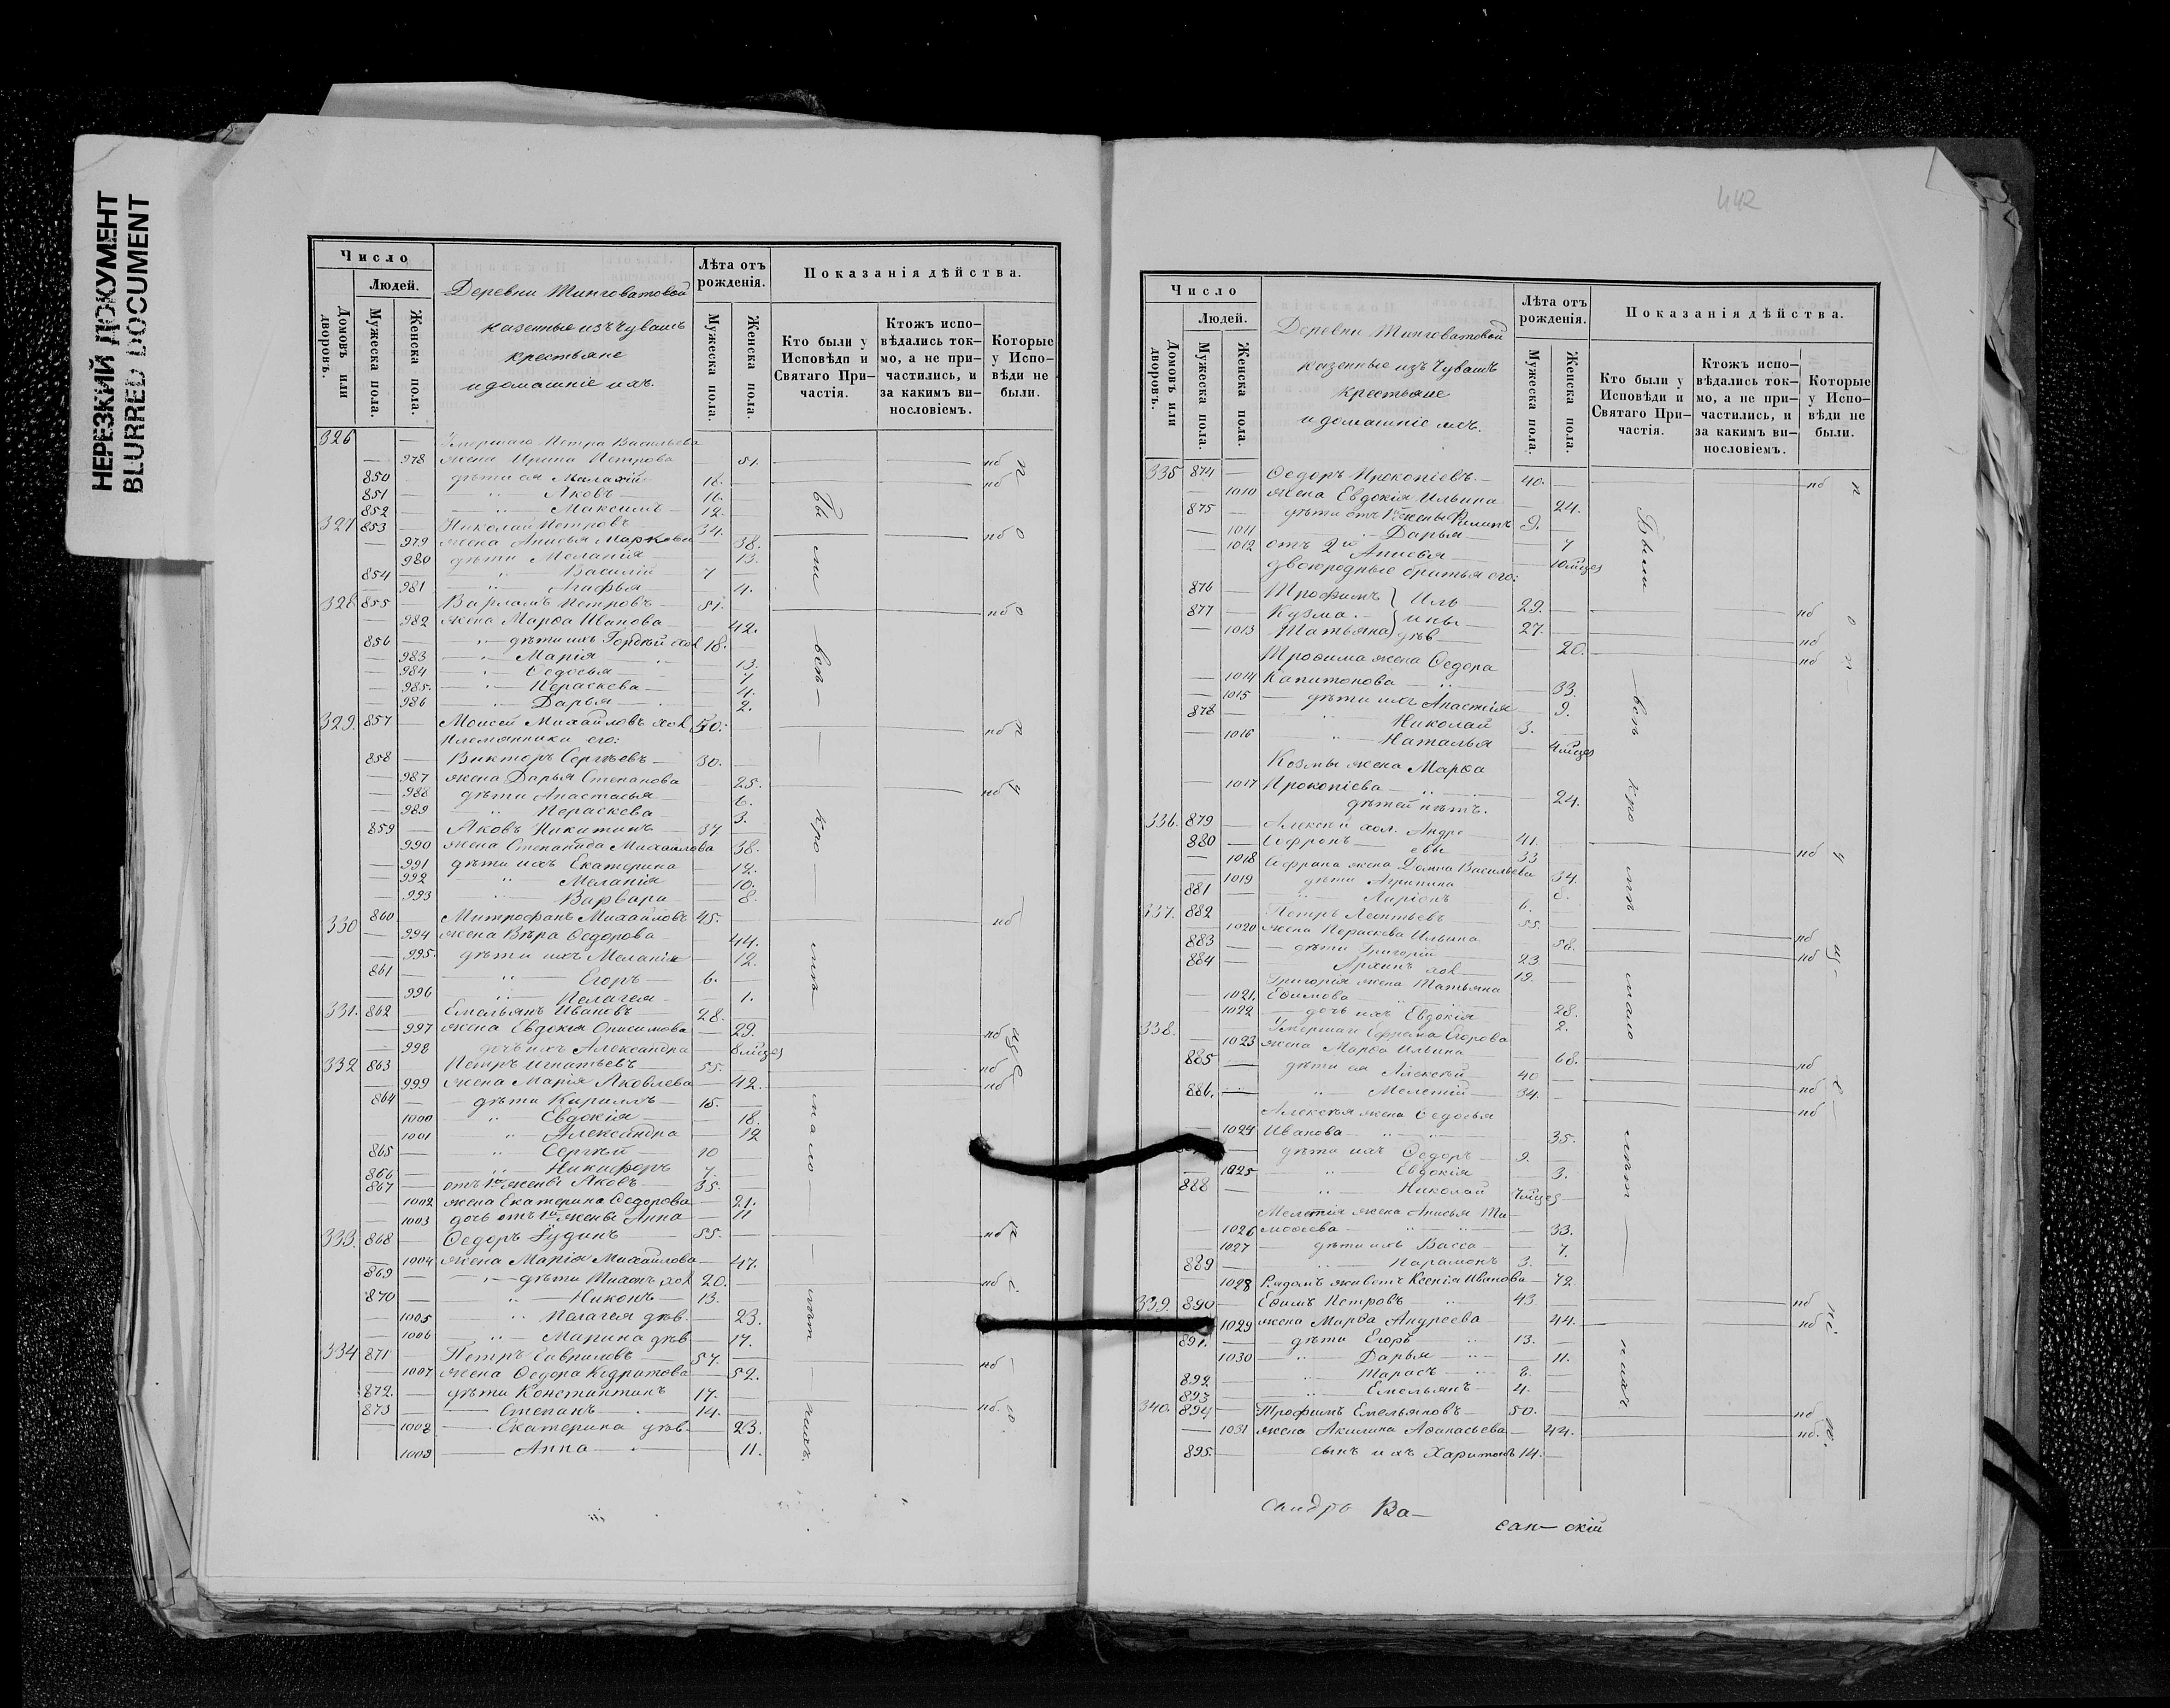 НЕРЕЗКИЙ ДОКУМЕНТ
BLURRED DOCUMENT
Число
Людей.
Домовъ или дворовъ.
Мужеска пола.
Женска пола.
Деревни Тинговатовой
казенные изъ Чувашъ
крестьяне
и домашніе ихъ.
Лѣта отъ рожденія.
Мужеска пола.
Женска пола.
Показанія дѣйства.
Кто были у Исповѣди и Святаго Причастія.
Ктожъ исповѣдались токмо, а не причастились, и за какимъ винословіемъ.
Которые у Исповѣди не были.
326 — Умершаго Петра Васильева
— 978 жена Ирина Петрова — 51. нб
850 — дѣти ея Малахій 18. — нб
851 — Яковъ — 16. —
852 — Максимъ — 12. —
327 853 — Николай Петровъ 34. — нб
— 979 жена Анисья Маркова — 38.
— 980 дѣти Меланія — 13.
854 — Василій 7 —
— 981 Агафья — 4.
328 855 — Варламъ Петровъ — 51. — нб
— 982 жена Марѳа Иванова — 42.
856 — дѣти ихъ Гордѣй хол 18. —
— 983 Марія — 13.
— 984 Ѳедосья — 7
— 985. Параскева — 4.
— 986 Дарья — 2.
329. 857 — Моисей Михайловъ хол 50. — нб
Племянники его:
858 — Викторъ Сергѣевъ — 30. —
— 987 жена Дарья Степанова — 25. нб
— 988 дѣти Анастасья — 6.
— 989 Параскева — 3.
859 — Яковъ Никитинъ — 37 —
— 990 жена Степанида Михайлова — 38.
— 991 дѣти ихъ Екатерина — 12.
— 992 Меланія — 10.
— 993 Варвара — 8.
330 860 — Митрофанъ Михайловъ 45. — нб
— 994 жена Вѣра Ѳедорова — 44.
— 995. дѣти ихъ Меланія — 12.
861 — Егоръ — 6. —
— 996 Пелагея — 1.
331. 862 — Емельянъ Ивановъ 28. —
— 997 жена Евдокія Онисимова — 29. нб
— 998 дочь ихъ Александра — 8 мѣсец
332 863 — Петръ Игнатьевъ 55. — нб
— 999 жена Марія Яковлева — 42. нб
864 — дѣти Кириллъ — 15. —
— 1000 Евдокія — 18.
— 1001 Александра — 12
865 — Сергѣй — 10 —
866 — Никифоръ 7. —
867 — отъ 1й жены Яковъ — 35. —
— 1002 жена Екатерина Ѳедорова — 21.
— 1003 дочь отъ 1й жены Анна — 11
333. 868 — Ѳедоръ Гудинъ — 55. — нб
— 1004 жена Марія Михайлова — 47.
869 — дѣти Тихонъ хол 20. — нб
870 — Никонъ — 13. —
— 1005 Пелагея дѣв. — 23.
— 1006 Марина дѣв — 17.
334 871 — Петръ Гавриловъ — 57. — нб
— 1007 жена Ѳедора Кодратова — 52.
872. — дѣти Константинъ 17. —
873 — Степанъ — 14. — нб.
— 1008 Екатерина дѣв. — 23.
— 1009 Анна — 11.
442
Число
Людей.
Домовъ или дворовъ.
Мужеска пола.
Женска пола.
Деревни Тинговатовой
казенные изъ Чувашъ
крестьяне
и домашніе ихъ.
Лѣта отъ рожденія.
Мужеска пола
Женска пола.
Показанія дѣйства.
Кто были у Исповѣди и Святаго Причастія.
Ктожъ исповѣдались токмо, а не причастились, и за какимъ винословіемъ.
Которые у Исповѣди не были.
335 874 — Ѳедоръ Прокопіевъ. — 40. — нб
— 1010 жена Евдокія Ильина — 24.
875 — дѣти отъ 1й жены Филипъ 9. —
— 1011 Дарья — 7
— 1012 отъ 2й Анисья — 10 мѣсец
двоюродные братья его:
876 — Трофимъ } Иль 29. — нб
877 — Кузма. } ины 27. — нб
— 1013 Татьяна } дѣв — 20. нб
Трофима жена Ѳедора
— 1014 Капитонова — 33.
— 1015 дѣти ихъ Анастасія — 9.
878 — Николай 3. —
— 1016 Наталья — 4 мѣсец
Козмы жена Марѳа
— 1017 Прокопіева — 24.
дѣтей нѣтъ.
336. 879 — Алексѣй хол. Андре 41. —
880 — Софронъ — евы 33 — нб
— 1018 Софрона жена Домна Васильева 34.
— 1019 дѣти Агрипина — 8.
881 — Ларіонъ — 6. —
337. 882 — Петръ Леонтьевъ 55. —
— 1020 жена Параскева Ильина — 58. нб
883 — дѣти Григорій 23 — нб
884 — Архипъ хол 19. —
Григорія жена Татьяна
— 1021. Ефимова — 28.
— 1022 дочь ихъ Евдокія — 2.
338. Умершаго Ефрема Егорова
— 1023 жена Марѳа Ильина — 68. нб
885 — дѣти ея Алексѣй 40 — нб
886. — Мелетій — 34. — нб
Алексѣя жена Ѳедосья
— 1024 Иванова — 35.
дѣти ихъ Ѳедоръ — 9. —
— 1025 Евдокія — 3.
888 — Николай 7 мѣсец —
Мелетія жена Анисья Ти-
— 1026 моѳеева — 33.
— 1027 дѣти ихъ Васса — 7.
889 — Парамонъ 3. —
— 1028 Рядомъ живетъ Ксенія Иванова — 72
339. 890 — Ефимъ Петровъ 43. — нб
— 1029 жена Марѳа Андреева — 44. нб
891. — дѣти Егоръ 13. —
— 1030 Дарья — 11.
892 — Тарасъ 8. —
893 — Емельянъ — 4. —
340. 894 — Трофимъ Емельяновъ 50. — нб
— 1031 жена Акилина Афанасьева — 44. нб.
895. — сынъ ихъ Харитонъ 14. —
Были
всѣ
Ва—
скій